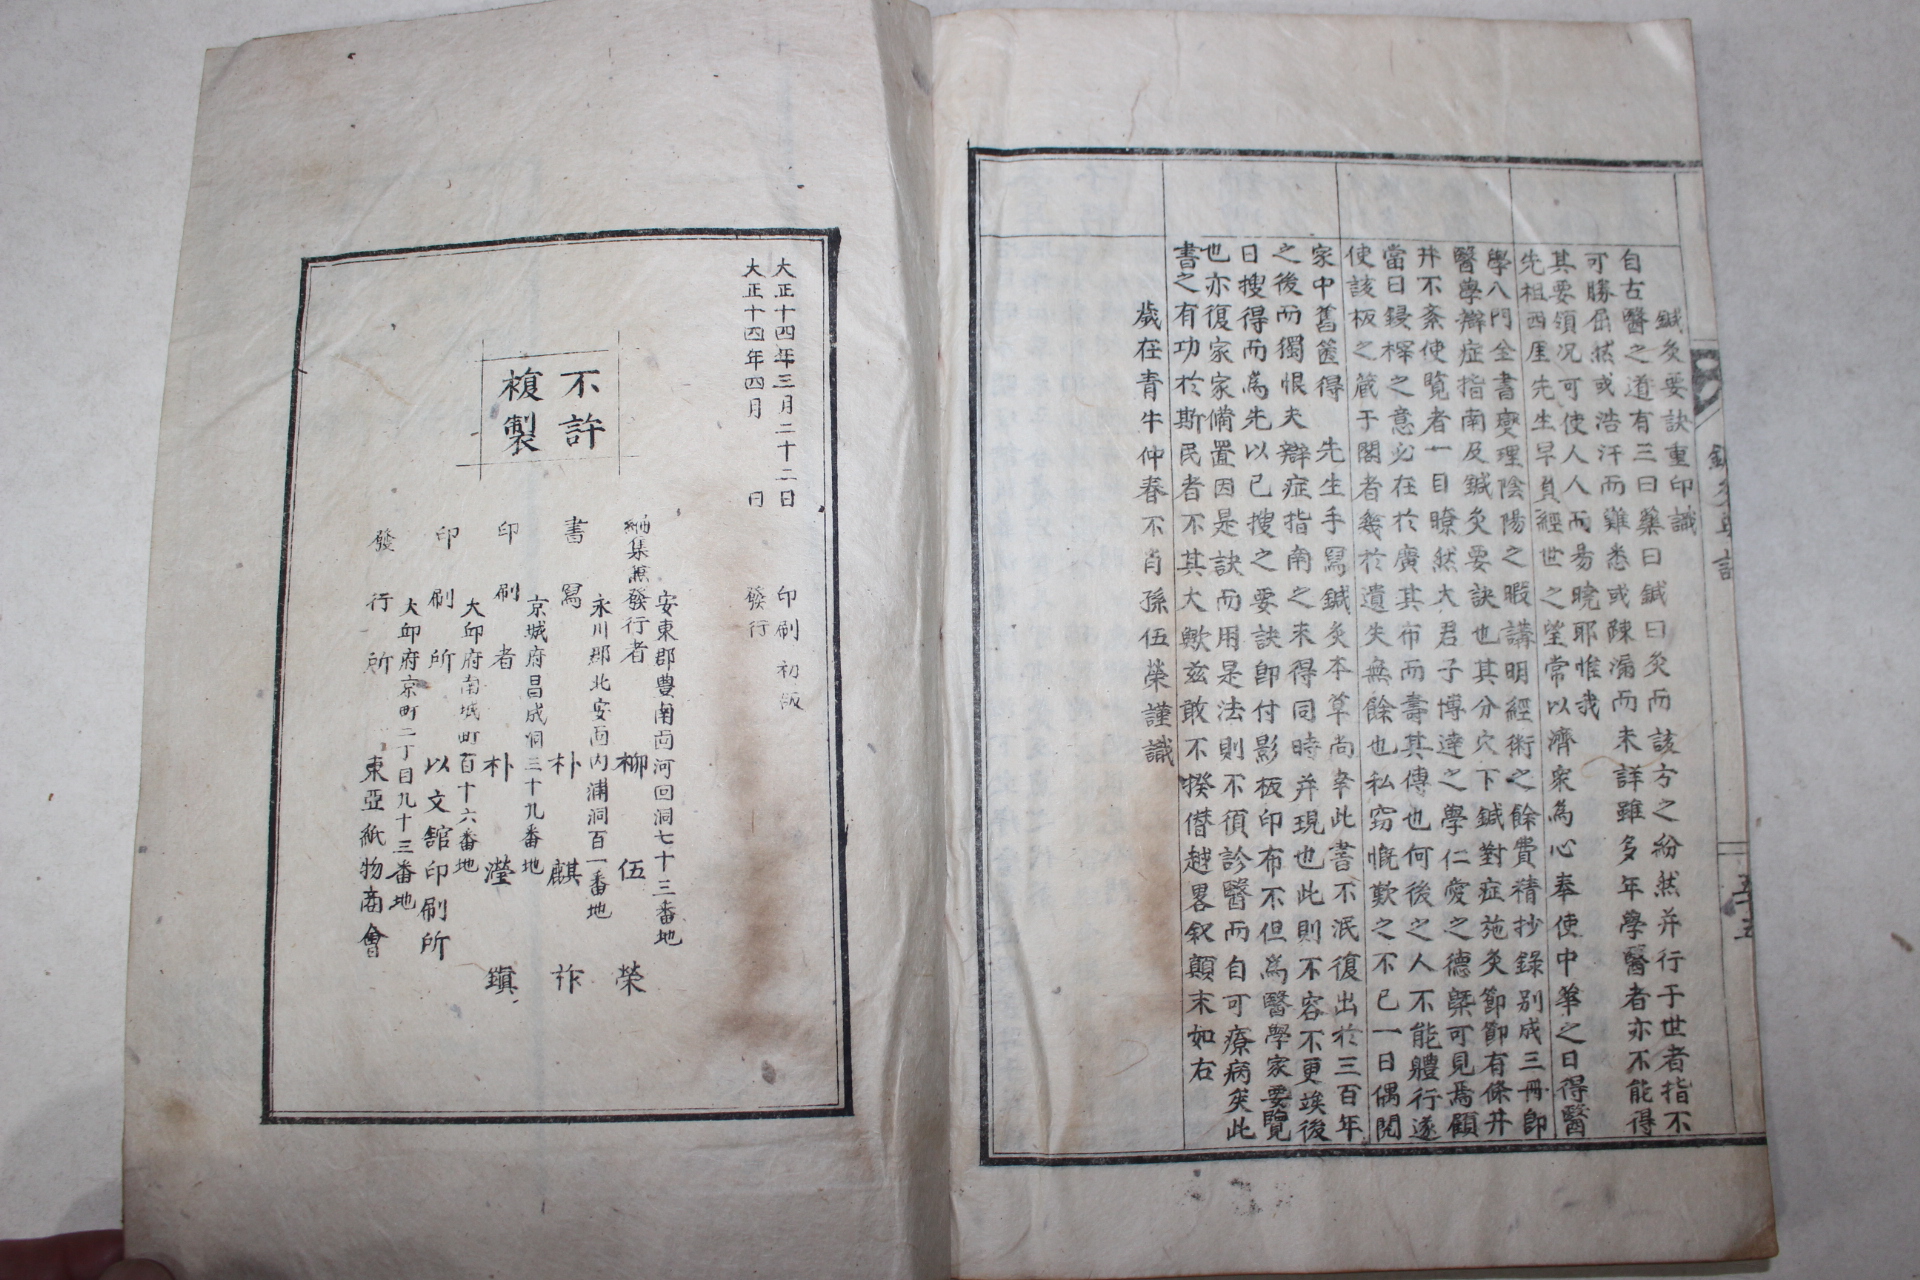 鍼灸要訣重印識
自古醫之道有三曰藥曰鍼曰灸而該方之紛然并行于世者指不
可勝屈然或浩汗而難悉或陳漏而未詳雖多年學醫者亦不能得
其要領况可使人人而易曉耶惟我
先祖西厓先生早負經世之望常以濟衆為心奉使中華之日得醫
學八門全書燮理陰陽之暇講明經術之餘費精抄錄别成三冊卽
醫學辯症指南及鍼灸要訣也其分穴下鍼對症施灸節節有條井
井不紊使覽者一目瞭然大君子博達之學仁愛之德槩可見焉顧
當日鋟榟之意必在於廣其布而壽其傳也何後之人不能軆行遂
使該板之蔵于閣者幾於遺失無餘也私窃慨歎之不已一日偶閱
家中舊篋得 先生手寫鍼灸本草尚幸此書不泯復出於三百年
之後而獨恨夫辯症指南之未得同時并現也此則不容不更竢後
日搜得而為先以已搜之要訣卽付影板印布不但為醫學家要覽
也亦復家家備置因是訣而用是法則不須診醫而自可療病矣此
書之有功於斯民者不其大歟玆敢不揆僣越畧叙顛末如右
歲在青牛仲春不肖孫伍榮謹識
五十五
大正十四年三月二十二日 印刷 初版
大正十四年四月 日 發行
不許
複製
安東郡豊南面河回洞七十三番地
編集兼發行者 柳伍榮
永川郡北安面内浦洞百一番地
書寫 朴麒祚
京城府昌成洞三十九番地
印刷者 朴瀅鎭
大邱府南城町百十六番地
印刷所 以文舘印刷所
大邱府京町二丁目九十三番地
發行所 東亞紙物商會